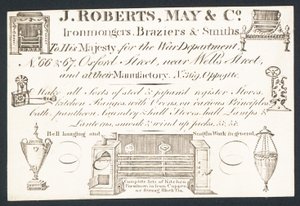 J. ROBERTS, MAY & Co.
Ironmongers, Braziers & Smiths,
To His Majesty, for the War Department,
No. 66 & 67, Oxford Street, near Wells Street,
and at their Manufactory, No. 369, Opposite.
Make all Sorts of steel & japan'd register Stoves,
Kitchen Ranges with Ovens on various Principles
bath, pantheon, Laundry & hall Stoves, hall Lamps &
Lanterns, smoak & wind up jacks, &c. &c.
Bell hanging and
Smiths Work in general.
Complete Sets of Kitchen
Furniture in Iron, Copper,
or Strong Block Tin.